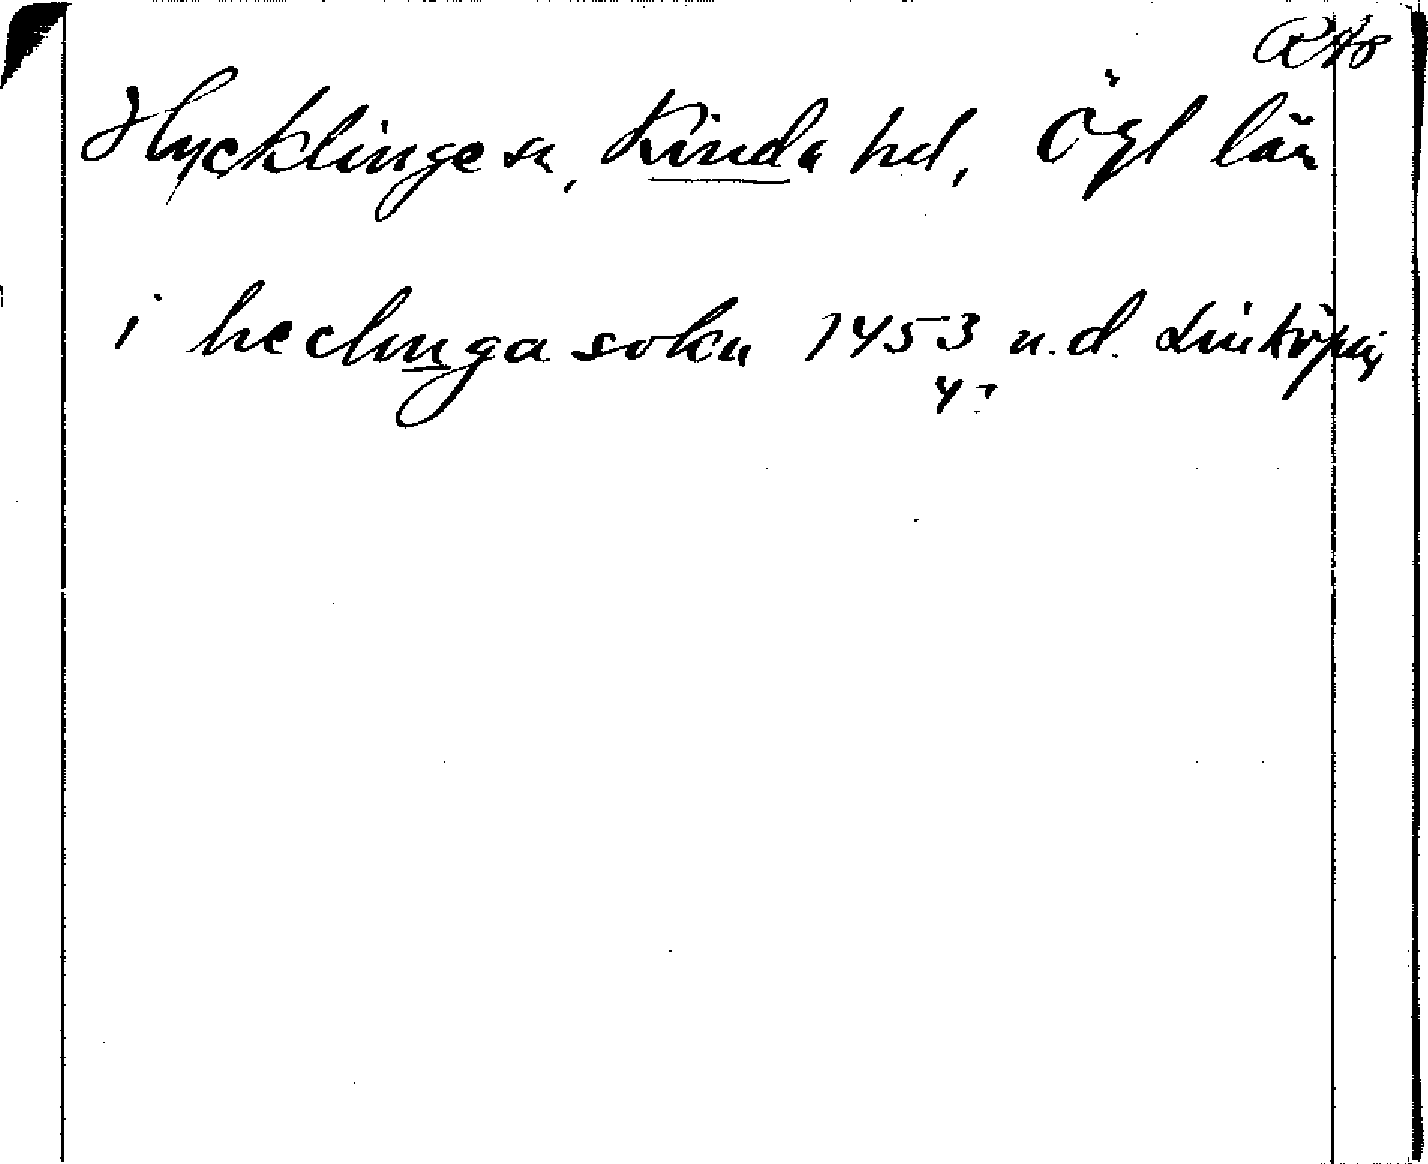 RAp
Hycklinge sn, Kinda hd, Ögl län
i heclinga sokn 1453 u.d. Linköping